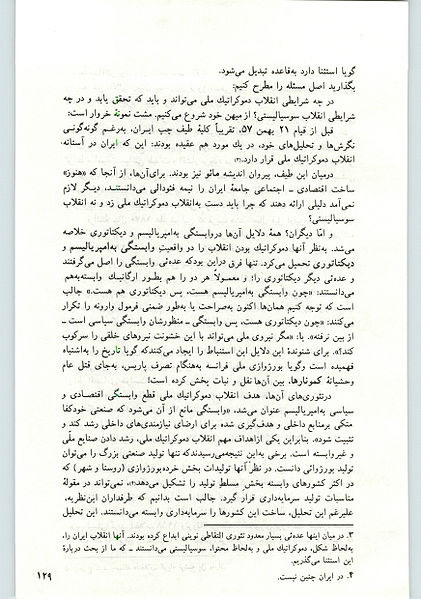 گویا استثنا دارد به‌قاعده تبدیل می‌شود.
بگذارید اصل مسئله را مطرح کنیم:
در چه شرایطی انقلاب دموکراتیك ملی می‌تواند و باید که تحقق یابد و در چه
شرایطی انقلاب سوسیالیستی؟ از میهن خود شروع می‌کنیم. مشت نمونهٔ خروار است:
قبل از قیام ۲۱ بهمن ۵۷، تقریباً کلیهٔ طیف چپ ایـران، به‌رغـم گونه‌گونـی
نگرش‌ها و تحلیل‌های خود، در یك مورد هم عقیده بودند: این که ایران در آستانه‌
انقلاب دموکراتیك ملی قرار دارد.(۳)
درمیان این طیف، پیروان اندیشه مائو نیز بودند. برای‌آن‌ها، از آنجا که «هنوز»
ساخت اقتصادی ـ اجتماعی جامعهٔ ایران را نیمه فئودالی می‌دانستـد، دیـگر لازم
نمی‌آمد دلیلی ارائه دهند که چرا باید دست به‌انقلاب دموکراتیك ملی زد و نه انقلاب
سوسیالیستی؟
و امّا دیگران؟ همهٔ دلایل آن‌ها دروابستگی به‌امپریالیسم و دیکتاتوری خلاصه
می‌شد. به‌نظر آنها دموکراتیك بودن انقلاب را دو واقعیتِ وابستگی به‌امپریالیسم و
دیکتاتوری تحمیل می‌کرد. تنها فرق دراین بودکه عده‌ئی وابستگی را اصل می‌گرفتند
و عده‌ئی دیگر دیکتاتوری را؛ و معمـولاً هر دو را هم بطـور ارگانیـك وابسته‌به‌هم
می‌دانستند: «چون وابستگی به‌امپریالیسم هست، پس دیکتاتوری هم هست.» جالب
است که توجه کنیم همان‌ها اکنون به‌صراحت یا به‌طور ضمنی فرمول وارونه را تکرار
می‌کنند: «چون دیکتاتوری هست، پس وابستگی ـ منظورشان وابستگی سیاسی است ـ
از بین نرفته». یا: «مگر نیروی ملی می‌تواند با این خشونت نیروهای خلقی را سرکوب
کند؟». برای شنوندهٔ این دلایل این استنباط را ایجاد می‌کنندکه گویا تاریخ را به‌اشتباه
فهمیده است وگویا بورژوازی ملی فرانسه به‌هنگام تصرف پاریس، به‌جای قتل عام
وحشیانهٔ کمونارها، بین آن‌ها نقل و نبات پخش کرده است!
درتئوری‌های آن‌ها، هدف انقلاب دموکراتیك ملی قطع وابستگی اقتصادی و
سیاسی به‌امپریالیسم عنوان می‌شد، «وابستگی مانع از آن می‌شود که صنعتی خودکفا
متکی برمنابع داخلی و هدف‌گیری شده برای ارضای نیازمندی‌های داخلی رشد کند و
تثبیت شود». بنابراین یکی ازاهداف مهم انقلاب دموکراتیك ملی، رشد دادن صنایع ملّی
و غیروابسته است. برخی به‌این نتیجه‌می‌رسیدندکه تنها تولید صنعتی بزرگ را می‌توان
تولید بورژوائی دانست. در نظر آنها تولیدات بخش خرده‌بورژوازی (روستا و شهر) که
در اکثر کشورهای وابسته بخش مسلط تولید را تشکیل می‌دهد(۴)، نمی‌تواند در مقولهٔ
مناسبات تولید سرمایه‌داری قرار گیرد. جالب است بدانیم که طرفداران این‌نظریه،
علیرغم این تحلیل، ساخت این کشورها را سرمایه‌داری وابسته می‌دانستند. این تحلیل
۳. در میان اینها عده‌ئی بسیار معدود تئوری التقاطی نوینی ابداع کرده بودند. آنها انقلاب ایران را،
به‌لحاظ شکل، دموکراتیك ملی و به‌لحاظ محتوا، سوسیالیستی می‌دانستند ـ که ما از بحث دربارهٔ
این استثنا می‌گذریم.
۴. در ایران چنین نیست.
۱۲۹